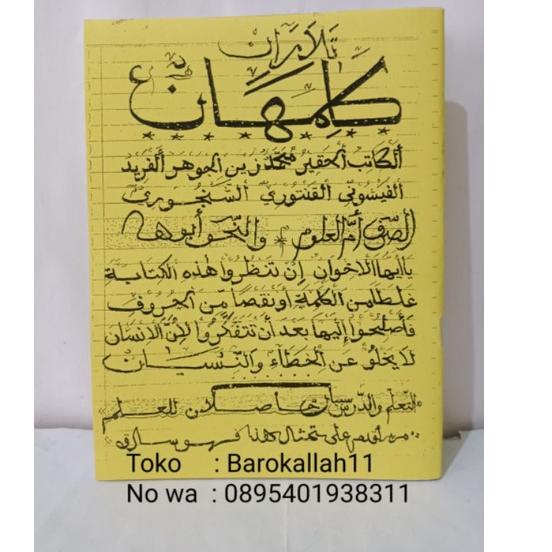 تلابران
كلمهان
ألكاتب ألحقير محمّد زين ألجوهر ألفريد
ألفيشوني ألقنتوري ألسّنجوري
ألصّرف أمّ العلوم * والنّحو أبوها
ياأيهاالاخوان إن تنظروا هذه الكتابة
غلطا من الكلمة أو نقصا من الحروف
فأصلحوا إليها بعد أن تتفكّروا لأنّ الانسان
لا يخلو عن الخطاء والنّسيان
التعلّم والدّرس سببان حاصلان للعلم
من اقدم على تمثال هذا فهو سارق
Toko : Barokallah11
No wa : 0895401938311